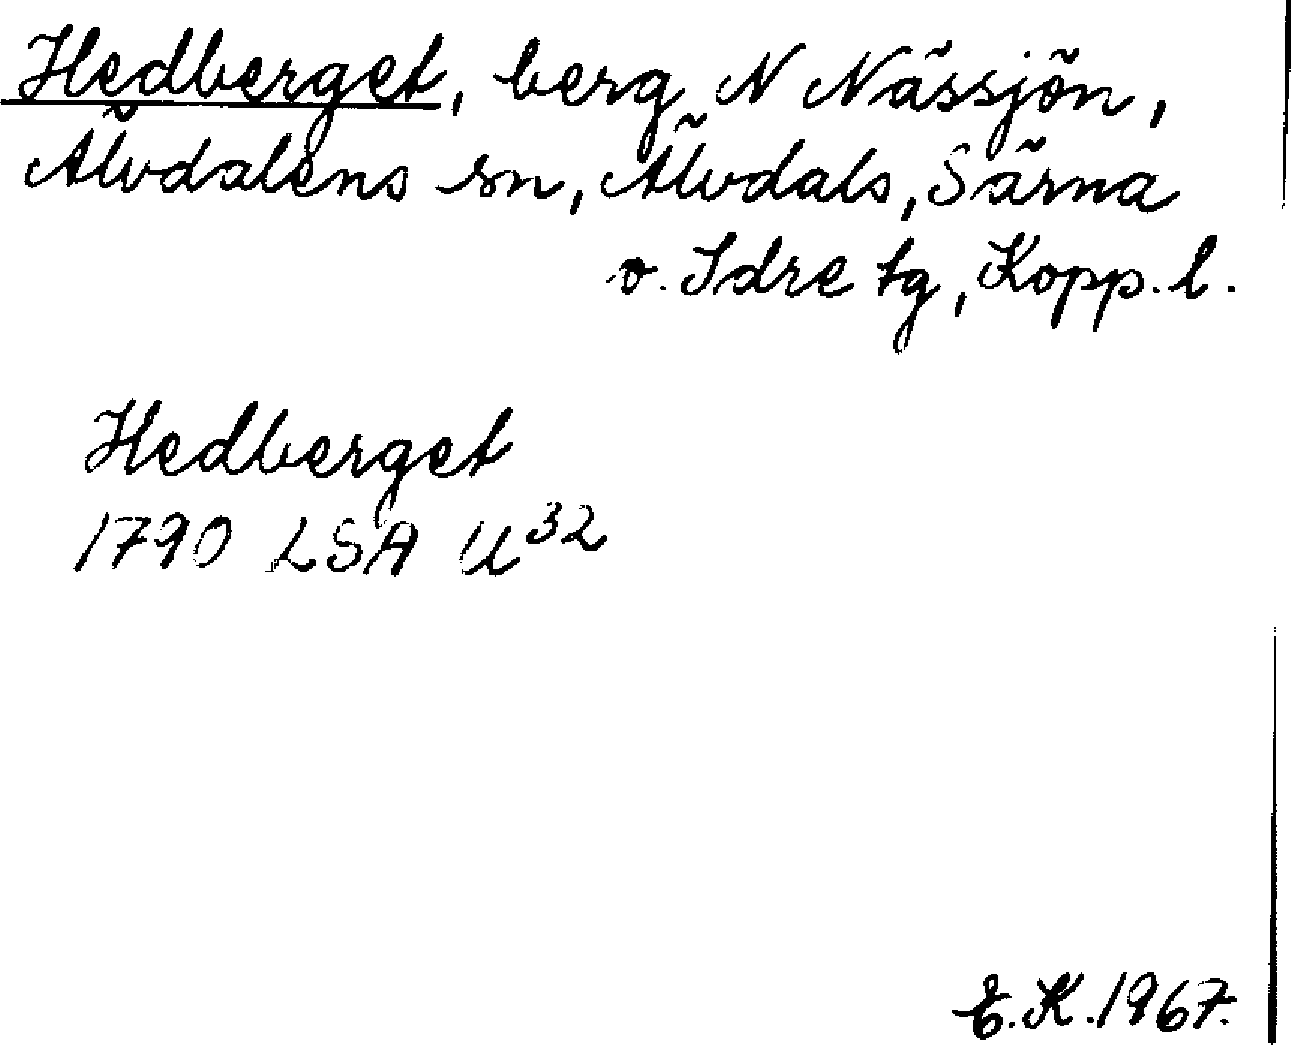 Hedberget, berg N Nässjön,
Älvdalens sn, Älvdals, Särna
o. Idre tg, Kopp. l.
Hedberget
1790 LSA U³²
E.K. 1967.